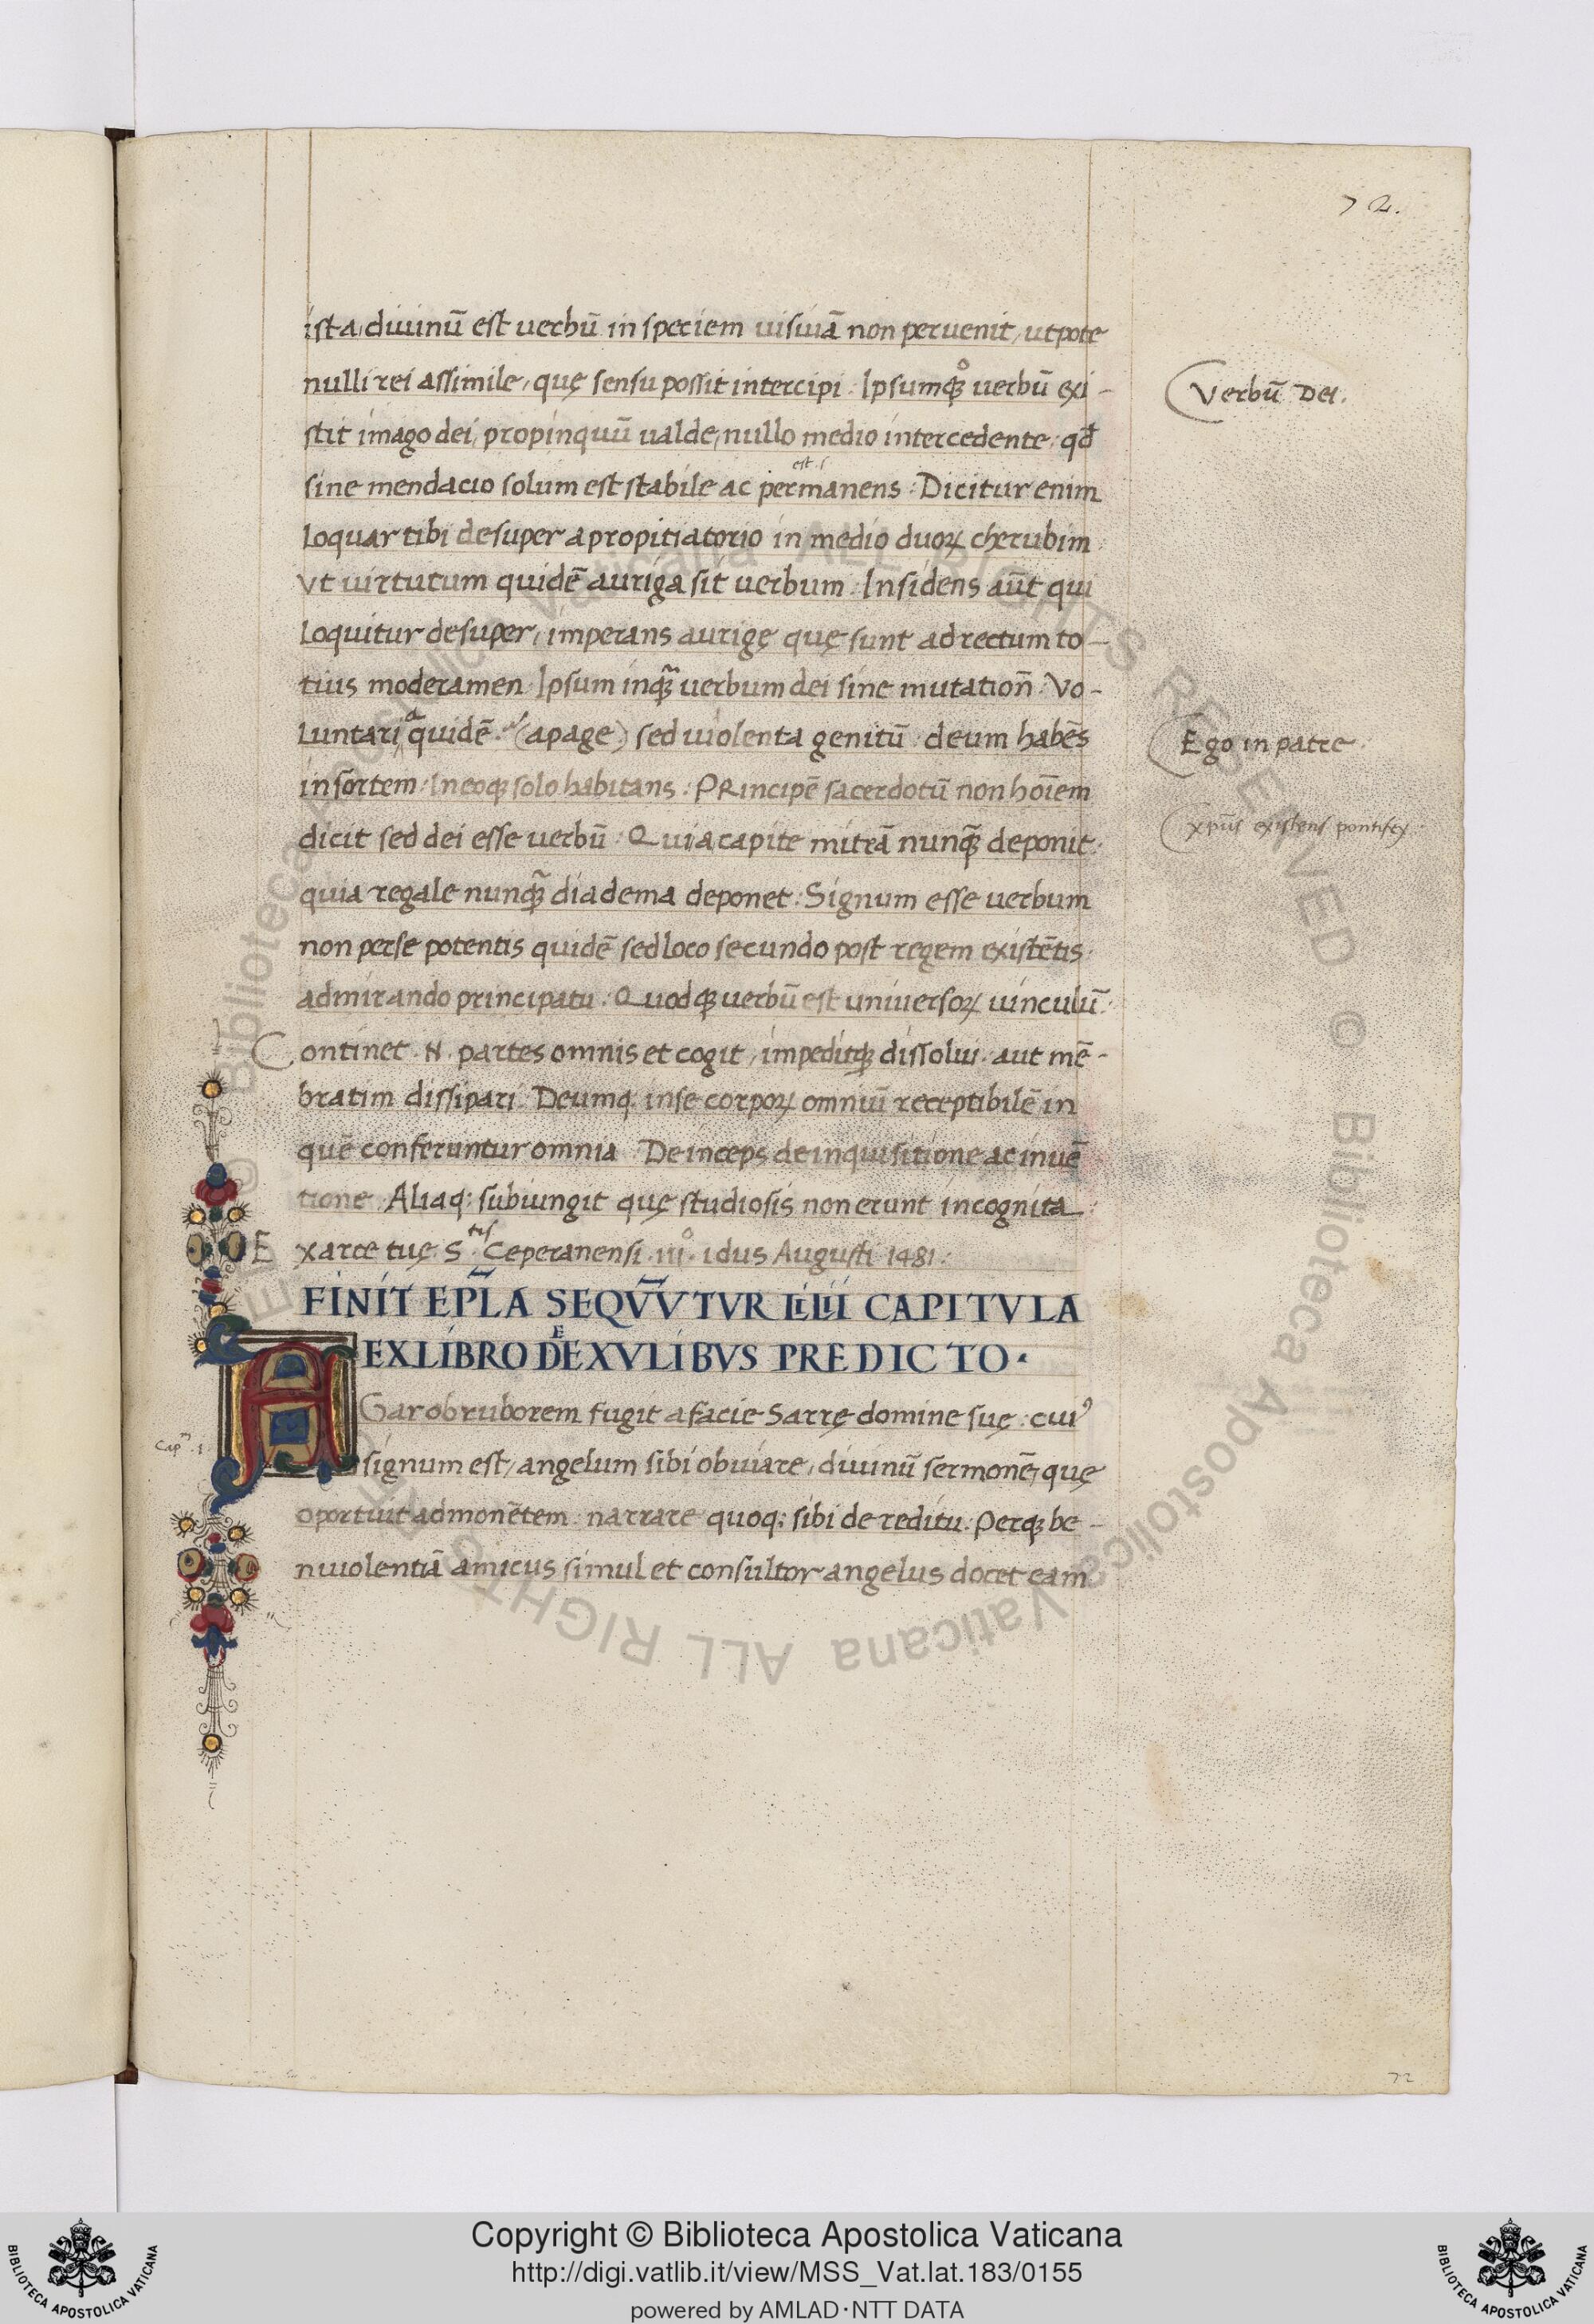 72.
ista, diuinū est uerbū in speciem uisiuā non peruenit, utpote
nulli rei assimile, quę sensu possit intercipi. Ipsumqꝫ uerbū exi-
stit imago dei, propinquū ualde, nullo medio intercedente: qđ
sine mendacio solum est stabile ac permanens: Dicitur enim
Loquar tibi desuper a propitiatorio in medio duoꝝ cherubim:
Vt uirtutum quidē auriga sit uerbum: Insidens aūt qui
loquitur desuper, imperans aurigę quę sunt ad rectum to-
tius moderamen. Ipsum inqꝫ uerbum dei sine mutatioñ: Vo-
luntaria quidē (apage) sed uiolenta genitū: deum habēs
in sortem: In eoqꝫ solo habitans: Principē sacerdotū non hoīem
dicit sed dei esse uerbū: Qui a capite mitrā nunqꝫ deponit:
quia regale nunqꝫ diadema deponet: Signum esse uerbum
non per se potentis quidē sed loco secundo post regem existētis:
admirando principatu: Quodqꝫ uerbū est uniuersoꝝ uinculū:
Continet .N. partes omnis et cogit, impeditqꝫ dissolui: aut mē-
bratim dissipari. Deumqꝫ in se corpoꝝ omniū receptibilē in
quē conferuntur omnia. Deinceps de inquisitione ac inuē
tione. Aliaqꝫ subiungit quę studiosis non erunt incognita:
Ex arce tuę S.tis Ceperanensi .iii.º idus Augusti 1481:
FINIT EPL̄A SEQVV̄TVR
CAPITVLA
EX LIBRO DE EXVLIBVS PREDICTO.
AGar ob ruborem fugit a facie Sarrę domine suę: cuiꝰ
signum est, angelum sibi obuiare, diuinū sermonē, quę
oportuit admonētem: narrare quoqꝫ sibi de reditu: Perqꝫ be-
niuolentiā amicus simul et consultor angelus docet eam
est
Verbū Dei.
Ego in patre.
xpūs existens pontifex.
Cap.m 1.
72
Copyright © Biblioteca Apostolica Vaticana
http://digi.vatlib.it/view/MSS_Vat.lat.183/0155
powered by AMLAD·NTT DATA
BIBLIOTECA APOSTOLICA VATICANA
BIBLIOTECA APOSTOLICA VATICANA
© Biblioteca Apostolica Vaticana ALL RIGHTS RESERVED © Biblioteca Apostolica Vaticana ALL RIGHTS RESERVED